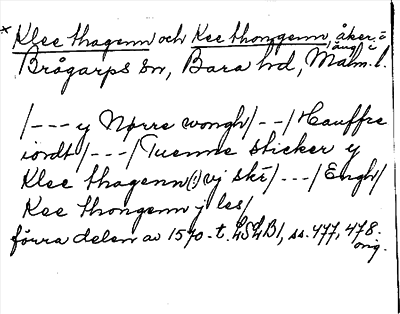 * Klee thagenn och Kee thonngenn, åker i äng i
Brågarps sn, Bara hd, Malm. l.
/--- y Nørre wongh/--/Hauffre
iordt/---/Tuenne sticker y
Klee thagenn(!) vj ski/---/Engh/
Kee thongenn j les/
förra delen av 1570-t. LSLB1, ss. 477, 478.
orig.